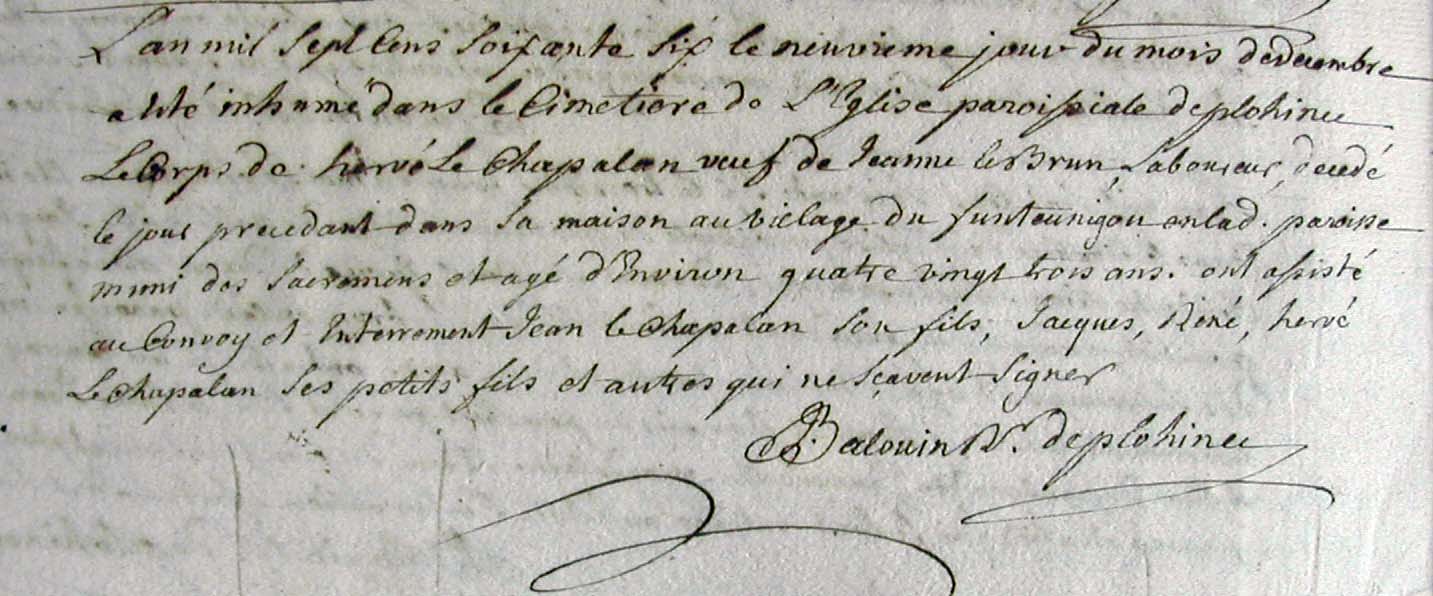 L'an mil sept cens soixante six le neuvieme jour du mois de decembre
a été inhumé dans le Cimetiere de L'Eglise paroissiale de plohinec
Le Corps de hervé Le Chapalan veuf de Jeanne le Brun, Laboureur, decedé
le jour precedant dans sa maison au vielage du funteunigou en lad. paroisse
muni des sacremens et agé d'Environ quatre vingt trois ans. ont assisté
au Convoy et Enterrement Jean le Chapalan son fils, Jacques, René, hervé
Le Chapalan ses petits fils et autres qui ne sçavent signer
Balouin Rr. de plohinec